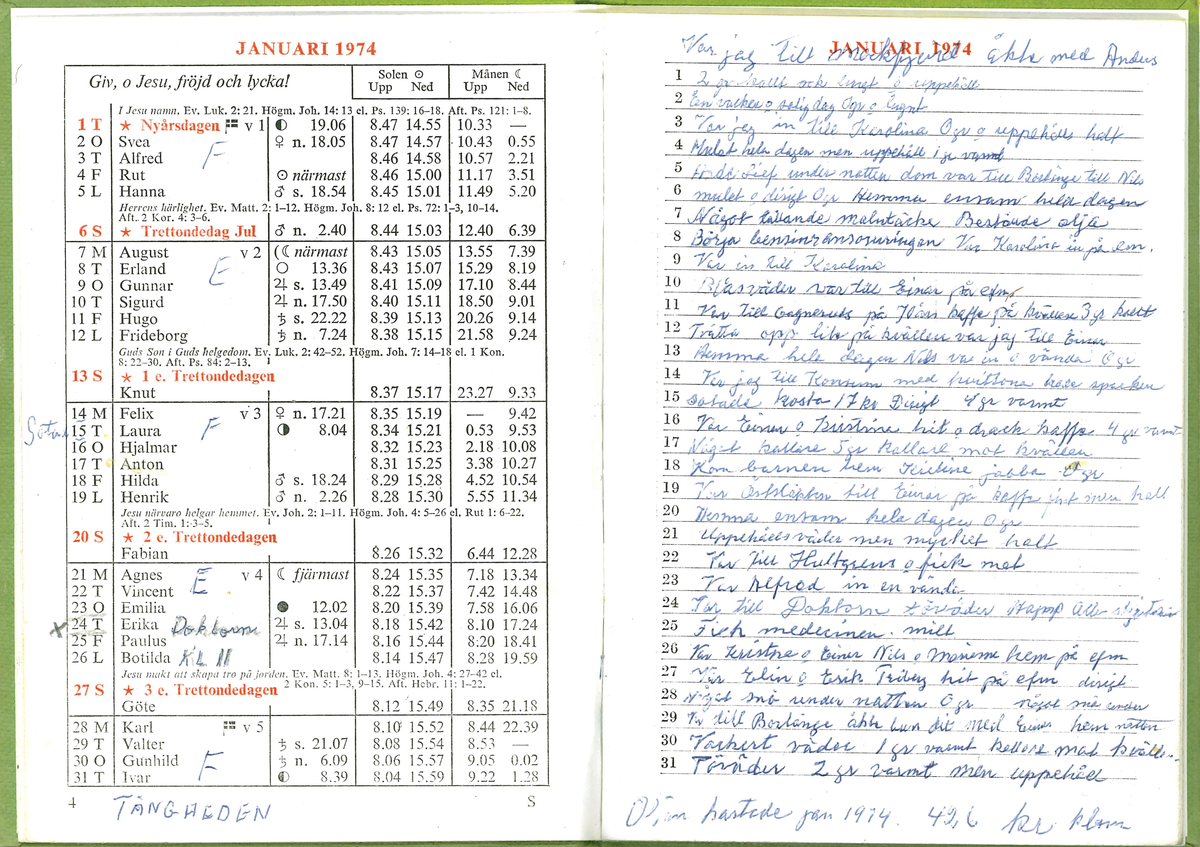 JANUARI 1974
Giv, o Jesu, fröjd och lycka!
Solen ☉ Månen ☾
Upp Ned Upp Ned
I Jesu namn. Ev. Luk. 2: 21. Högm. Joh. 14: 13 el. Ps. 139: 16–18. Aft. Ps. 121: 1–8.
1 T ★ Nyårsdagen v 1 ◐ 19.06 8.47 14.55 10.33 —
2 O Svea F ♀ n. 18.05 8.47 14.57 10.43 0.55
3 T Alfred 8.46 14.58 10.57 2.21
4 F Rut ☉ närmast 8.46 15.00 11.17 3.51
5 L Hanna ♂ s. 18.54 8.45 15.01 11.49 5.20
Herrens härlighet. Ev. Matt. 2: 1–12. Högm. Joh. 8: 12 el. Ps. 72: 1–3, 10–14.
Aft. 2 Kor. 4: 3–6.
6 S ★ Trettondedag Jul ♂ n. 2.40 8.44 15.03 12.40 6.39
7 M August v 2 (☾ närmast 8.43 15.05 13.55 7.39
8 T Erland E ○ 13.36 8.43 15.07 15.29 8.19
9 O Gunnar ♃ s. 13.49 8.41 15.09 17.10 8.44
10 T Sigurd ♃ n. 17.50 8.40 15.11 18.50 9.01
11 F Hugo ♄ s. 22.22 8.39 15.13 20.26 9.14
12 L Frideborg ♄ n. 7.24 8.38 15.15 21.58 9.24
Guds Son i Guds helgedom. Ev. Luk. 2: 42–52. Högm. Joh. 7: 14–18 el. 1 Kon.
8: 22–30. Aft. Ps. 84: 2–13.
13 S ★ 1 e. Trettondedagen
Knut 8.37 15.17 23.27 9.33
14 M Felix v 3 ♀ n. 17.21 8.35 15.19 — 9.42
15 T Laura F ◑ 8.04 8.34 15.21 0.53 9.53
16 O Hjalmar 8.32 15.23 2.18 10.08
17 T Anton 8.31 15.25 3.38 10.27
18 F Hilda ♂ s. 18.24 8.29 15.28 4.52 10.54
19 L Henrik ♂ n. 2.26 8.28 15.30 5.55 11.34
Jesu närvaro helgar hemmet. Ev. Joh. 2: 1–11. Högm. Joh. 4: 5–26 el. Rut 1: 6–22.
Aft. 2 Tim. 1: 3–5.
20 S ★ 2 e. Trettondedagen
Fabian 8.26 15.32 6.44 12.28
21 M Agnes E v 4 ☾ fjärmast 8.24 15.35 7.18 13.34
22 T Vincent 8.22 15.37 7.42 14.48
23 O Emilia ● 12.02 8.20 15.39 7.58 16.06
x 24 T Erika Doktorn ♃ s. 13.04 8.18 15.42 8.10 17.24
25 F Paulus ♃ n. 17.14 8.16 15.44 8.20 18.41
26 L Botilda KL 11 8.14 15.47 8.28 19.59
Jesu makt att skapa tro på jorden. Ev. Matt. 8: 1–13. Högm. Joh. 4: 27–42 el.
2 Kon. 5: 1–3, 9–15. Aft. Hebr. 11: 1–22.
27 S ★ 3 e. Trettondedagen
Göte 8.12 15.49 8.35 21.18
28 M Karl v 5 8.10 15.52 8.44 22.39
29 T Valter ♄ s. 21.07 8.08 15.54 8.53 —
30 O Gunhild F ♄ n. 6.09 8.06 15.57 9.05 0.02
31 T Ivar ◐ 8.39 8.04 15.59 9.22 1.28
4 S
TÄNGHEDEN
JANUARI 1974
Var jag till åkte med Anders
1 2 gr kallt och lugnt o uppehåll
2 En vacker o solig dag 0gr o lugnt
3 Var jag in till Karolina 0 gr o uppehålls halt
4 Mulet hela dagen men uppehåll 1 gr varmt
5 under natten dom var till Borlänge till Nils
6 mulet o disigt 0 gr Hemma ensam hela dagen
7 Något molntäcke Beställde olja
8 Börja bensinransoneringen Var Karolina in på em.
9 Var in till Karolina
10 Blåsväder var till Einar på efm
11 Var till på kaffe på kvällen 3 gr kallt
12 Tvätta opp lite på kvällen var jag till Einar
13 Hemma hela dagen Nils var in o vände 0 gr
14 Var jag till Konsum med
15 Sotade kosta 17 kr Disigt 4 gr varmt
16 Var Einar o Kristine hit o drack kaffe 4 gr varmt
17 Något kallare 5 gr kallare mot kvällen
18 Kom barnen hem Kristine jobba 0 gr
19 Var till Einar på kaffe men halt
20 Hemma ensam hela dagen 0 gr
21 Uppehållsväder men mycket halt
22 Var till Hultgrens o fick mat
23 Var Alfred in en vända
24 Var till Doktorn töväder
25 Fick medecinen. milt
26 Var Kristine o Einar Nils o hem på efm
27 Var Elin o Erik hit på efm disigt
28 Något snö under natten 0 gr något snö under
29 Var till Borlänge åkte dit med Einar hem natten
30 Vackert väder 1 gr varmt kallare mot kvällen
31 Töväder 2 gr varmt men uppehåll
kostade jan 1974. 49,6 kr